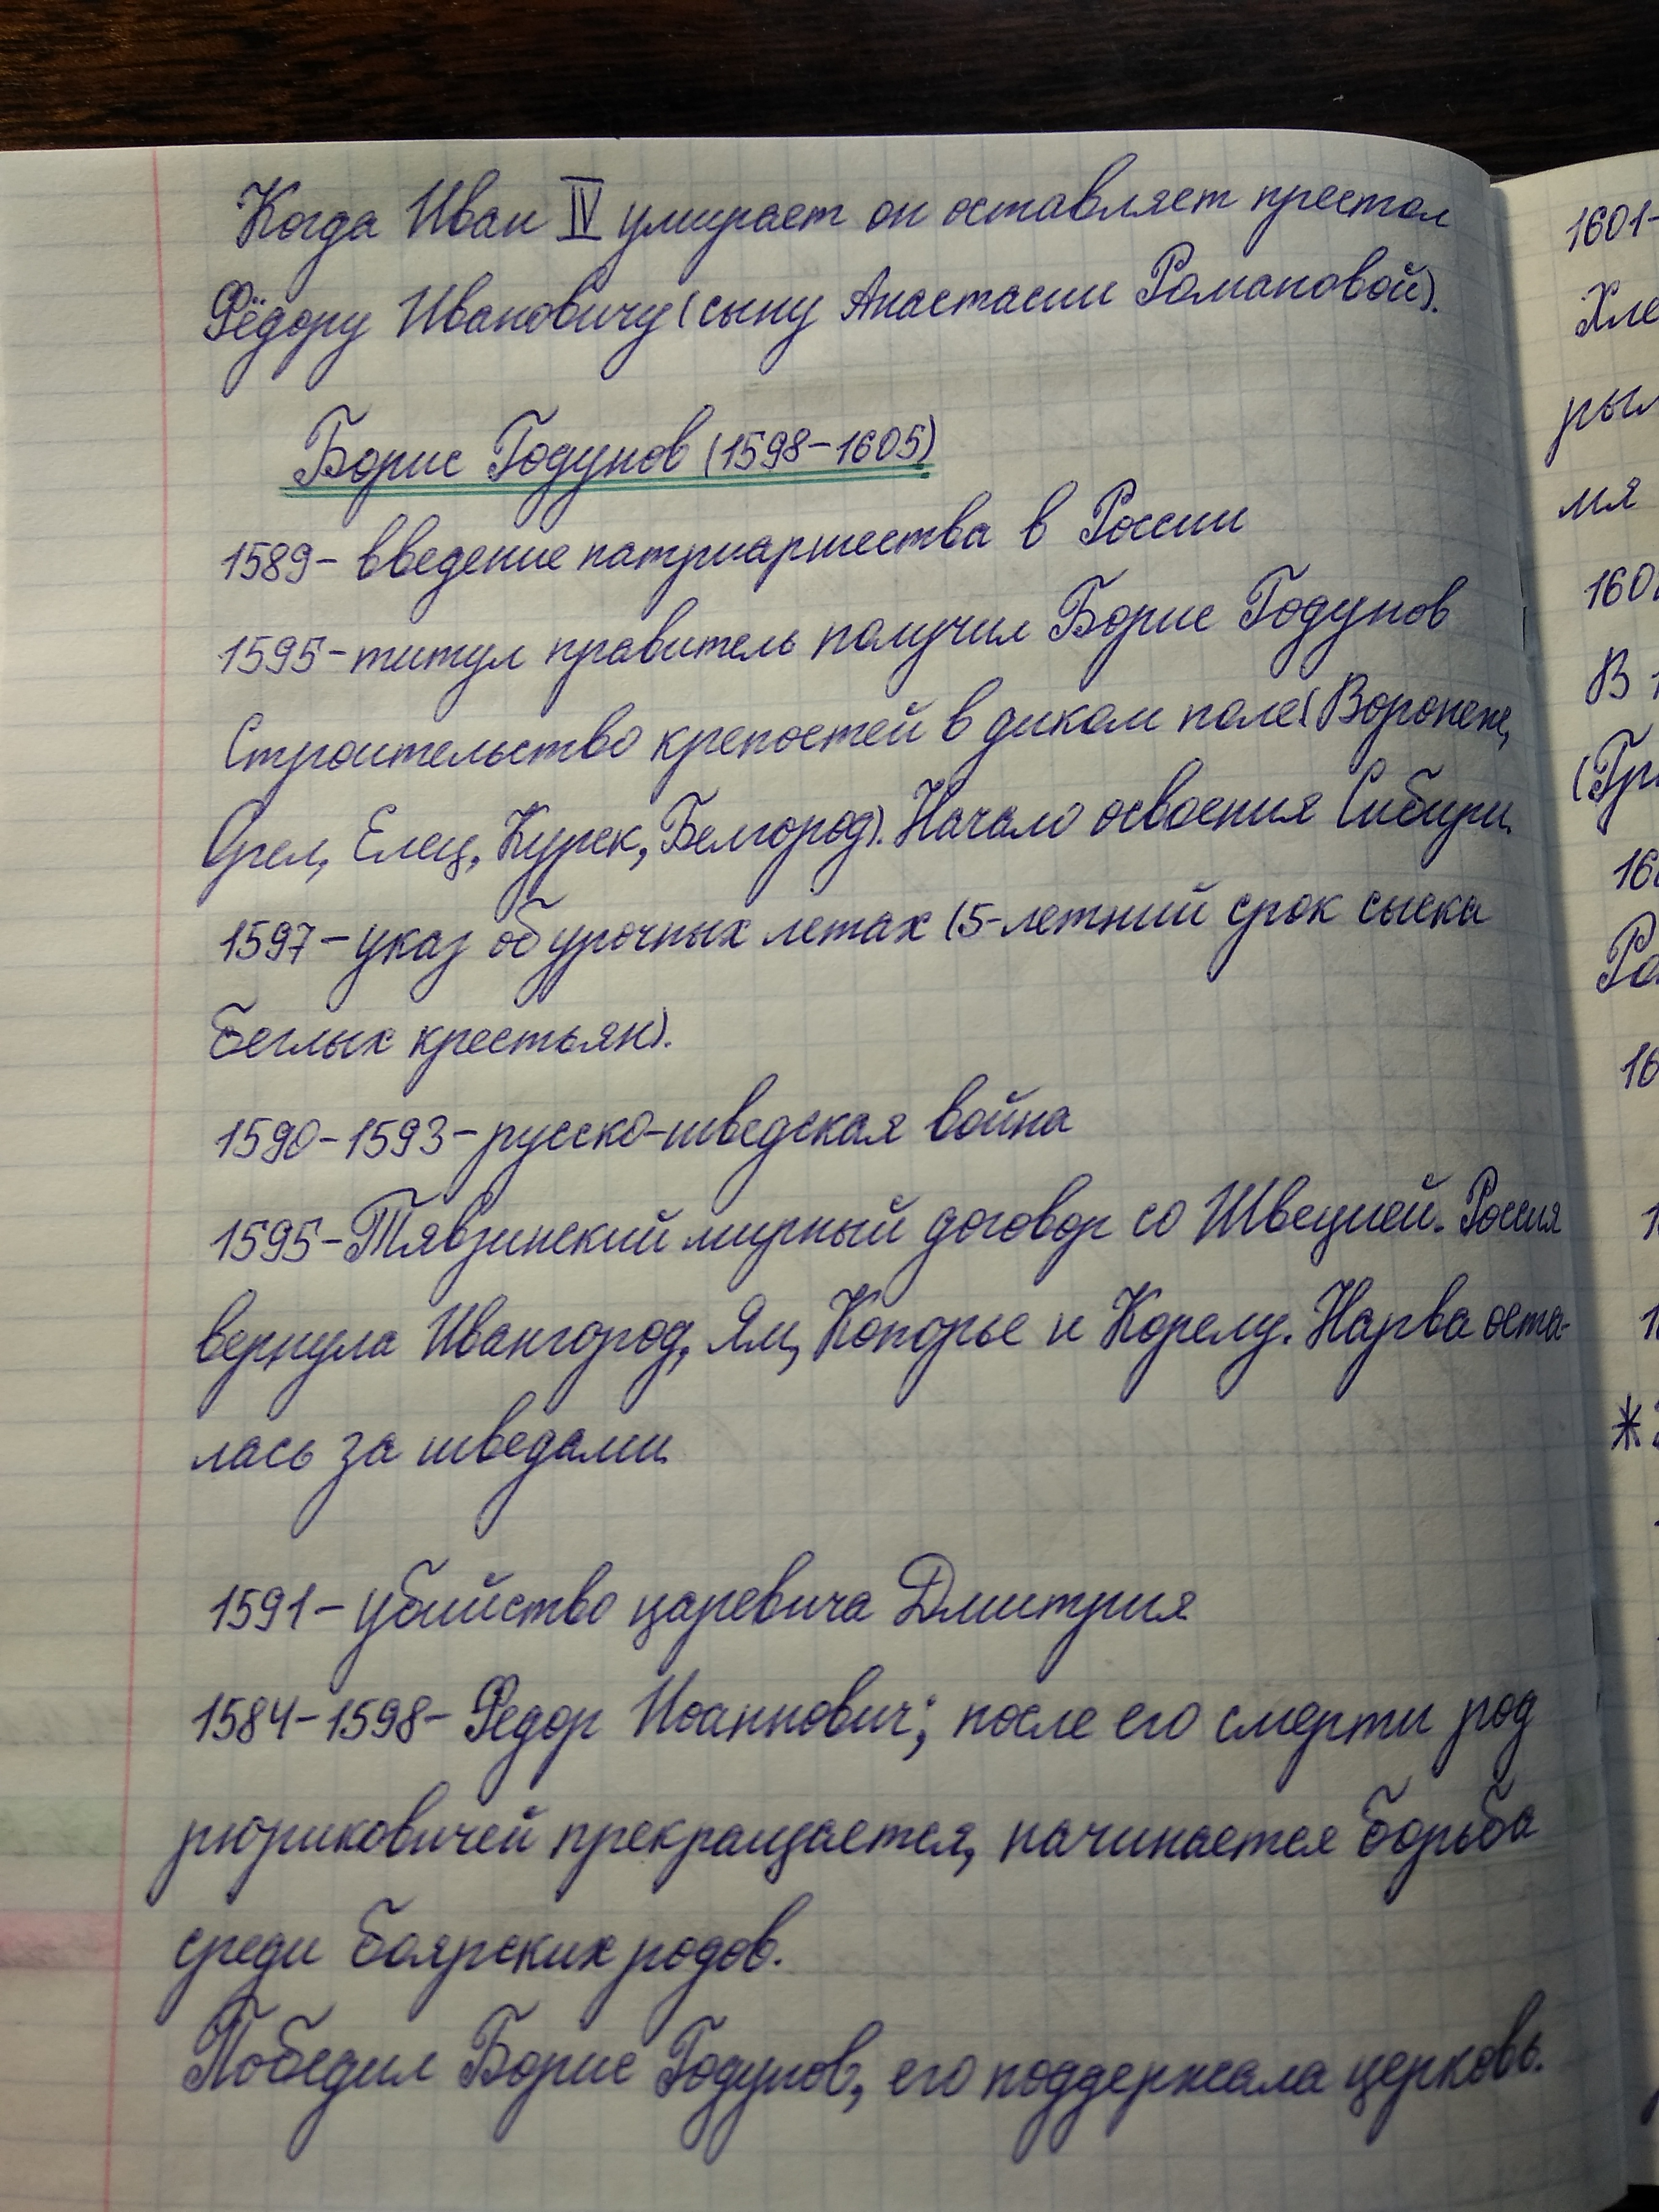 Когда Иван IV умирает он оставляет престол
Фёдору Ивановичу (сыну Анастасии Романовой).
Борис Годунов (1598-1605)
1589- введение патриаршества в России
1595-титул правитель получил Борис Годунов
Строительство крепостей в диком поле (Воронеж,
Орел, Елец, Курск, Белгород). Начало освоения Сибири.
1597-указ об урочных летах (5-летний срок сыска
беглых крестьян).
1590-1593-русско-шведская война
1595-Тявзинский мирный договор со Швецией. Россия
вернула Ивангород, Ям, Копорье и Корелу. Нарва оста-
лась за шведами.
1591-убийство царевича Дмитрия
1584-1598- Федор Иоаннович; после его смерти род
рюриковичей прекращается, начинается борьба
среди боярских родов.
Победил Борис Годунов, его поддержала церковь.
1601-
Хле
мя
В
16
16